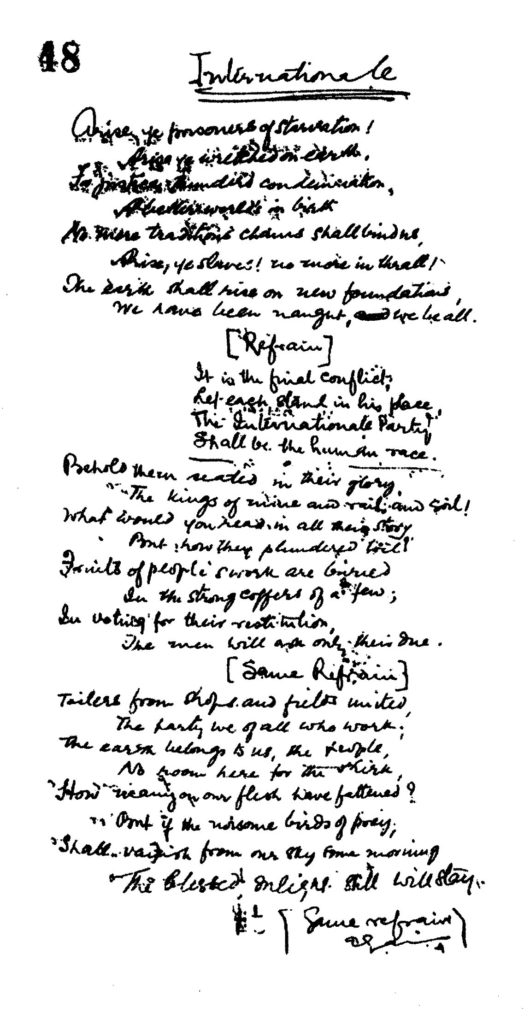 48
Internationale
Arise, ye prisoners of starvation!
Arise ye wretched on earth,
For justice thunders condemnation,
A better world's in birth
No more tradition's chains shall bind us,
Arise, ye slaves! no more in thrall!
The earth shall rise on new foundations,
We have been naught, we be all.
[Refrain]
It is the final conflict,
Let each stand in his place,
The Internationale Party
Shall be the human race.
Behold them seated in their glory,
The kings of mine and rail and soil!
What would you read in all their story
But how they plundered toil!
Fruits of people's work are buried
In the strong coffers of a few;
In voting for their restitution,
The men will ask only their due.
[Same Refrain]
Toilers from shops and fields united,
The party we of all who work;
The earth belongs to us, the people,
No room here for the shirk,
How many on our flesh have fattened?
But if the noisome birds of prey,
Shall vanish from our sky some morning
The blessed still will stay.
(Same refrain
again)